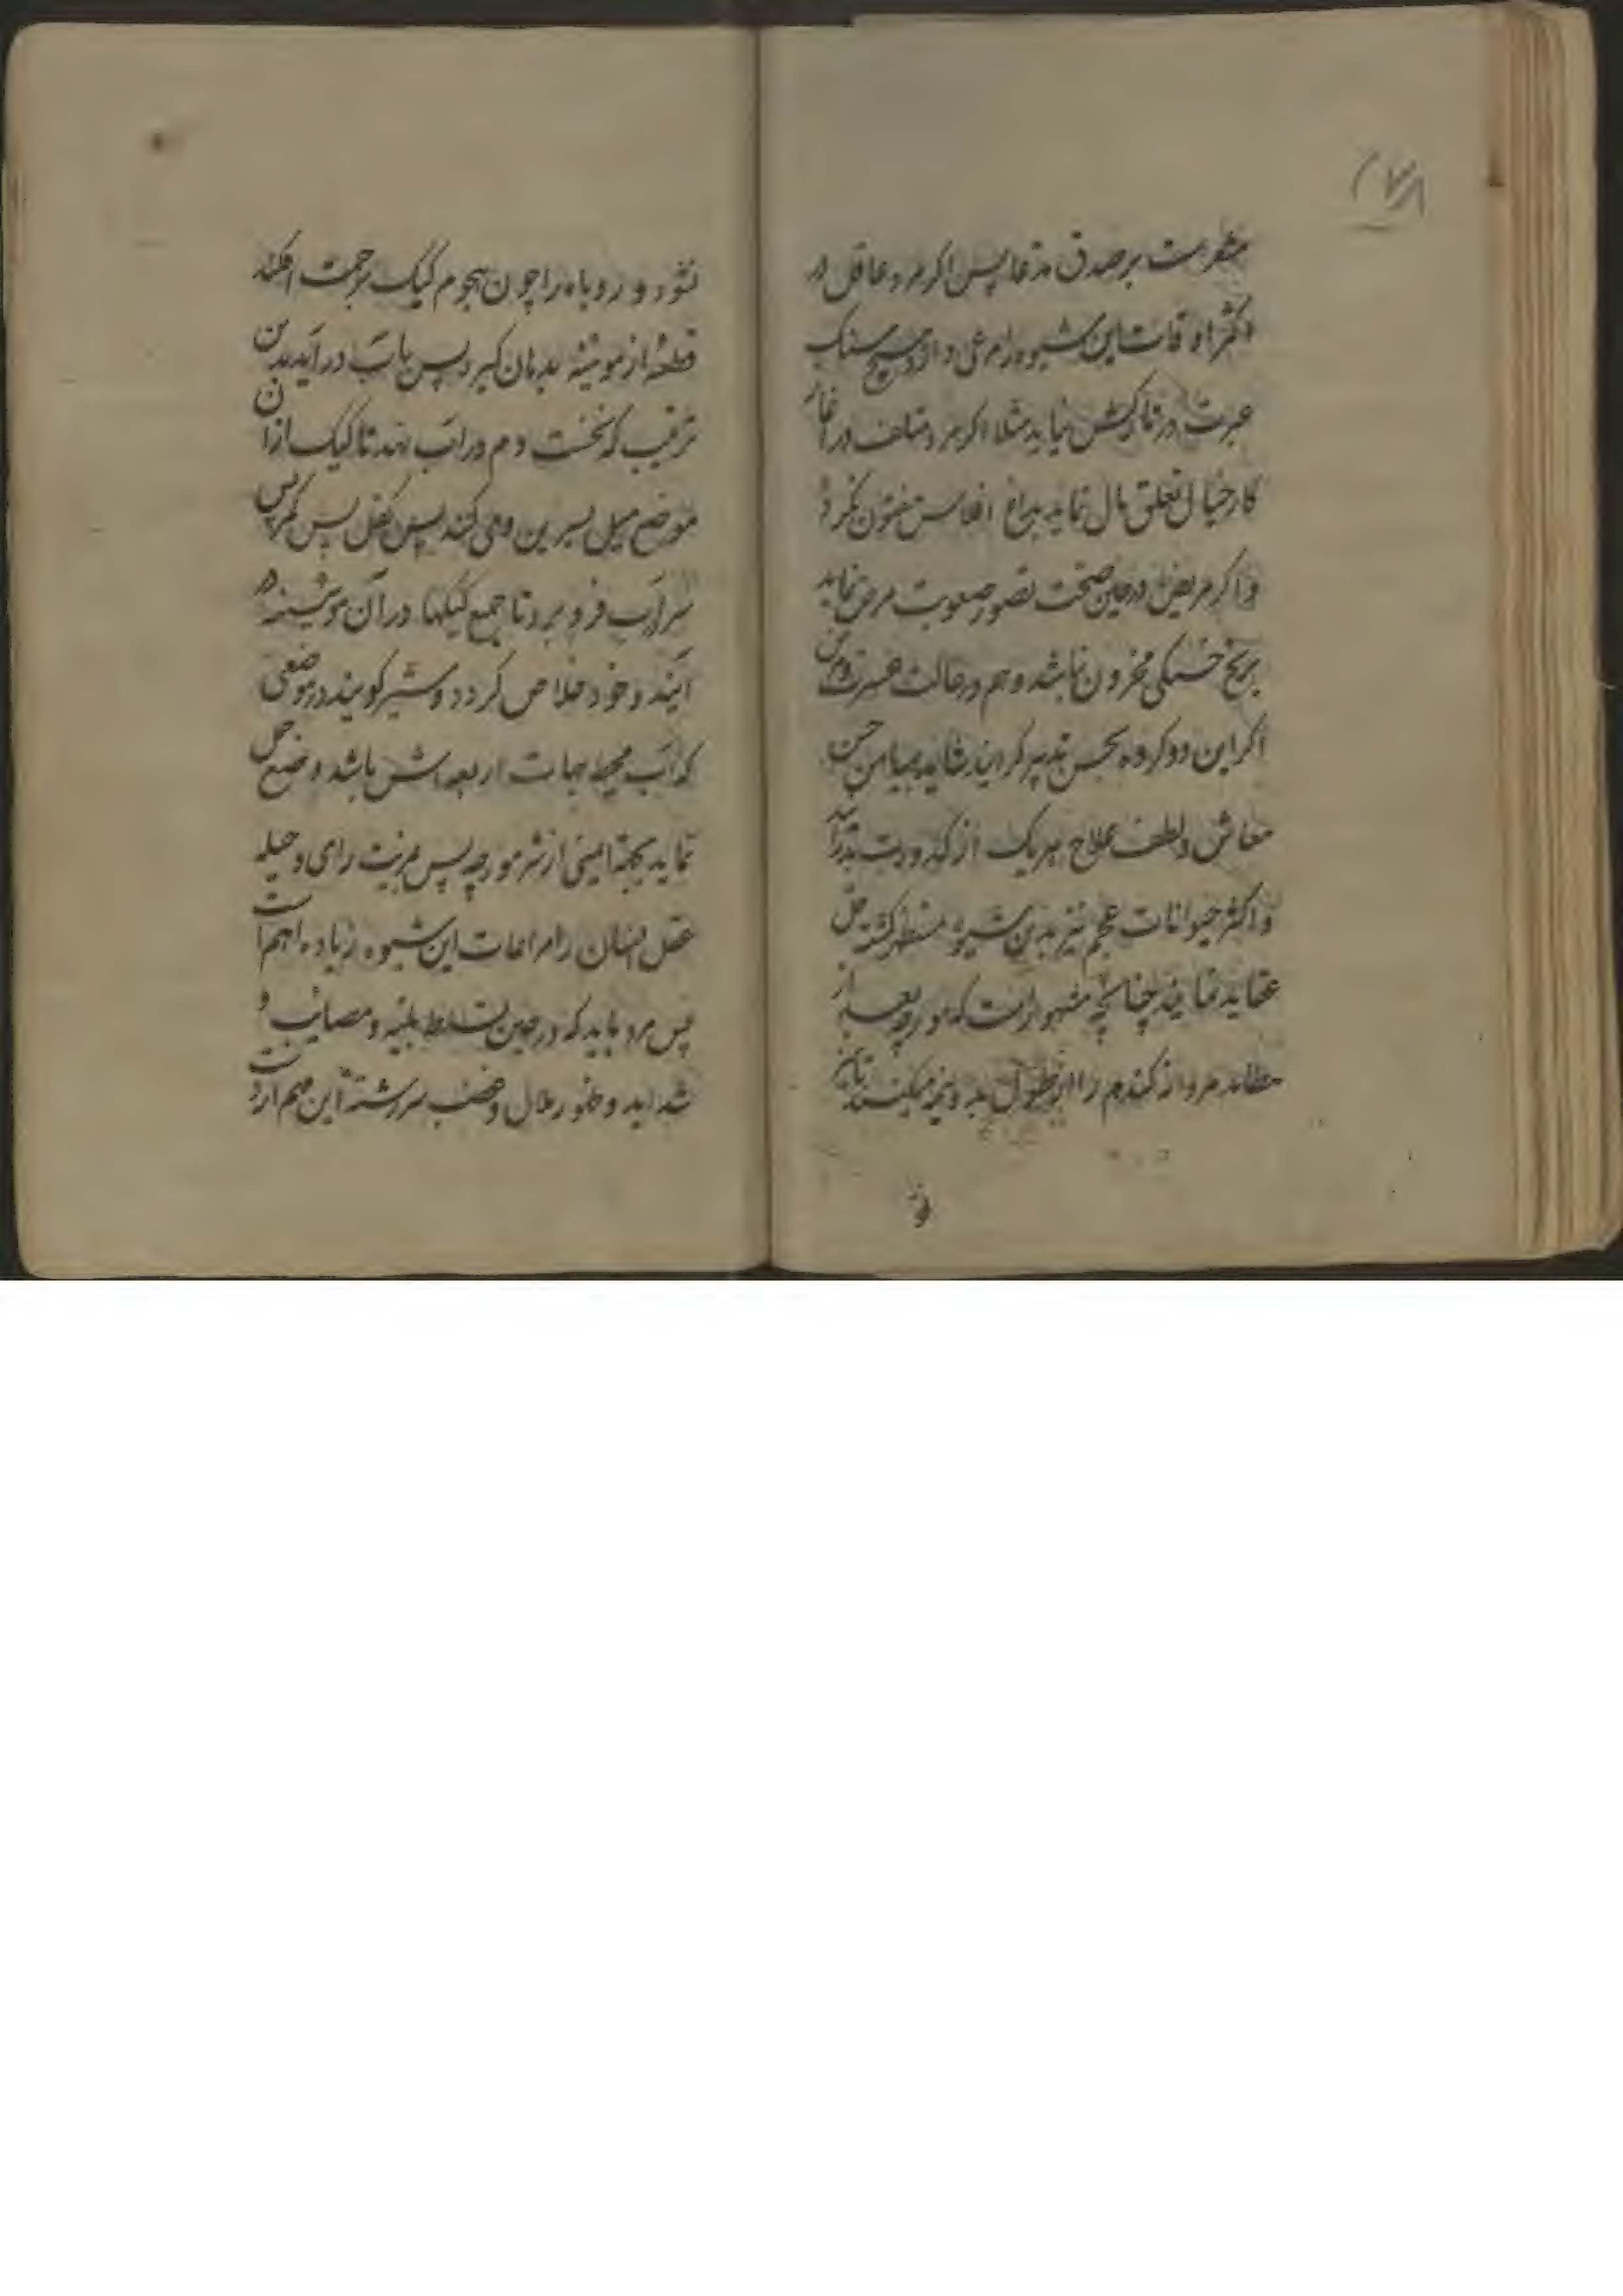 مشعر است بر صدق مدعا پس اکر مرد عاقل در
اکثر اوقات این شیوه را مرعی دارد هیچ سنک
عبرت در تارکش نیاید مثلا اکر مرد متلف در آغاز
کار خیال تعلق مال نماید بداغ افلاس مفتون نکردد
و اکر مریض در حین صحت تصور صعوبت مرض نماید
برنج خستکی محزون نباشد و هم در حالت عسرت و مرض
اکر این دو کروه بحسن تدبیر کرایند شاید بمیامن حسن
معاش و لطف علاج هر یک از کدورت برآید
و اکثر حیوانات عجم نیز بدین شیوه کشته حل
عقاید نمایند چنانچه مشهور است که مورچه بعد از
مر دانه کندم را از طول بدو نیمه میکند تا نیز
نشود و روباه را چون هجوم کیک بزحمت افکند
قطعهٔ از موئینه بدهان کیرد پس بآب در آید بدین
ترتیب که نخست دم در آب نهد تا کیک از آن
موضع میل بسرین وی کند پس کفل پس کمر پس
سر بآب فرو برد تا جمیع کیکها در آن موئینه در
آیند و خود خلاص کردد و شیر کویند در موضعی
که آب محیط جهات اربعه اش باشد وضع حمل
نماید بجهة ایمنی از شر مورچه پس بمزیت رای و حیله
عقل انسان را مراعات این شیوه زیاده اهم است
پس مرد باید که در حین تسلط بلیه و مصائب و
شداید و ظهور ملال و غضب سررشتهٔ این مهم از دست